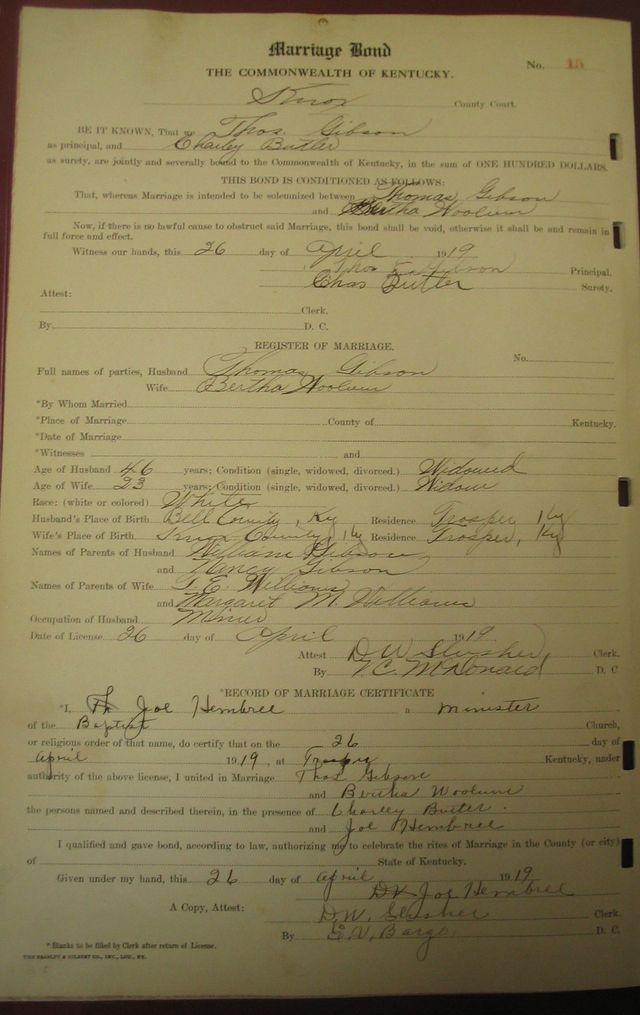 Marriage Bond
No. 15
THE COMMONWEALTH OF KENTUCKY.
Knox County Court.
BE IT KNOWN, That we Thos. Gibson
as principal, and Charley Butler
as surety, are jointly and severally bound to the Commonwealth of Kentucky, in the sum of ONE HUNDRED DOLLARS.
THIS BOND IS CONDITIONED AS FOLLOWS:
That, whereas Marriage is intended to be solemnized between Thomas Gibson
and Bertha Woolum
Now, if there is no lawful cause to obstruct said Marriage, this bond shall be void, otherwise it shall be and remain in
full force and effect.
Witness our hands, this 26 day of April 1919
Thos Gibson Principal.
Chas Butler Surety.
Attest:
Clerk.
By D. C.
REGISTER OF MARRIAGE.
No.
Full names of parties, Husband Thomas Gibson
Wife Bertha Woolum
*By Whom Married
*Place of Marriage County of Kentucky.
*Date of Marriage
*Witnesses and
Age of Husband 46 years; Condition (single, widowed, divorced.) Widowed
Age of Wife 23 years; Condition (single, widowed, divorced.) Widow
Race: (white or colored) White
Husband's Place of Birth Bell County, Ky Residence Trosper, Ky
Wife's Place of Birth County, Ky Residence Trosper, Ky
Names of Parents of Husband William Gibson
and Nancy Gibson
Names of Parents of Wife T. E. Williams
and Margaret M. Williams
Occupation of Husband Miner
Date of License 26 day of April 1919
Attest D W Slusher, Clerk.
By McDonald D. C
*RECORD OF MARRIAGE CERTIFICATE
*I, Joe Hembree a minister
of the Baptist Church,
or religious order of that name, do certify that on the 26 day of
april 1919, at Trosper Kentucky, under
authority of the above license, I united in Marriage Thos Gibson
and Bertha Woolum
the persons named and described therein, in the presence of Charley Butler.
and Joe Hembree
I qualified and gave bond, according to law, authorizing me to celebrate the rites of Marriage in the County (or city)
of State of Kentucky.
Given under my hand, this 26 day of april 1919
Joe Hembree
A Copy, Attest: D. W. Slusher Clerk.
By E. V. Bargo. D. C.
*Blanks to be filled by Clerk after return of License.
THE BRADLEY & GILBERT CO., INC., LOU., KY.